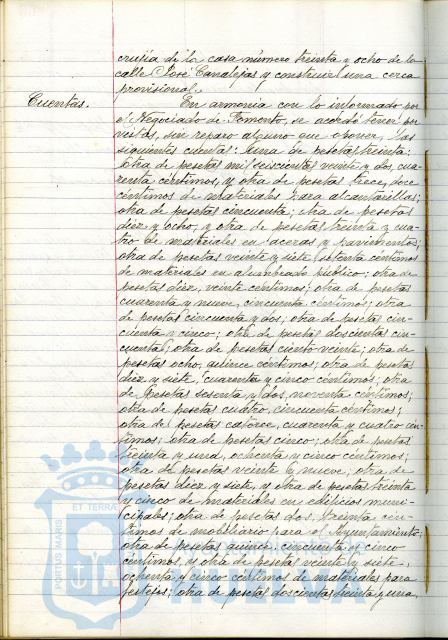 crujía de la casa número treinta y ocho de la
calle José Canalejas y construir una cerca
provisional.
Cuentas.
En armonía con lo informado por
el Negociado de Fomento, se acordó tener por
vistas, sin reparo alguno que oponer, las
siguientes cuentas: Una de pesetas treinta;
otra de pesetas mil seiscientas veinte y dos, cua-
renta céntimos, y otra de pesetas trece, doce
céntimos de materiales para alcantarillas;
otra de pesetas cincuenta; otra de pesetas
diez y ocho, y otra de pesetas treinta y cua-
tro de materiales en aceras y pavimentos;
otra de pesetas veinte y siete, setenta céntimos
de materiales en alumbrado público; otra de
pesetas diez, veinte céntimos; otra de pesetas
cuarenta y nueve, cincuenta céntimos; otra
de pesetas cincuenta y dos; otra de pesetas cin-
cuenta y cinco; otra de pesetas doscientas cin-
cuenta; otra de pesetas ciento veinte; otra de
pesetas ocho, quince céntimos; otra de pesetas
diez y siete, cuarenta y cinco céntimos; otra
de pesetas sesenta y dos, noventa céntimos;
otra de pesetas cuatro, cincuenta céntimos;
otra de pesetas catorce, cuarenta y cuatro cén-
timos; otra de pesetas cinco; otra de pesetas
treinta y una, ochenta y cinco céntimos;
otra de pesetas veinte y nueve; otra de
pesetas diez y siete, y otra de pesetas treinta
y cinco de materiales en edificios muni-
cipales; otra de pesetas dos, treinta cén-
timos de mobiliario para el Ayuntamiento;
otra de pesetas quince, cincuenta y cinco
céntimos, y otra de pesetas veinte y siete,
ochenta y cinco céntimos de materiales para
festejos; otra de pesetas doscientas treinta y una,
PORTUS MARIS ET TERRAE
HUELVA